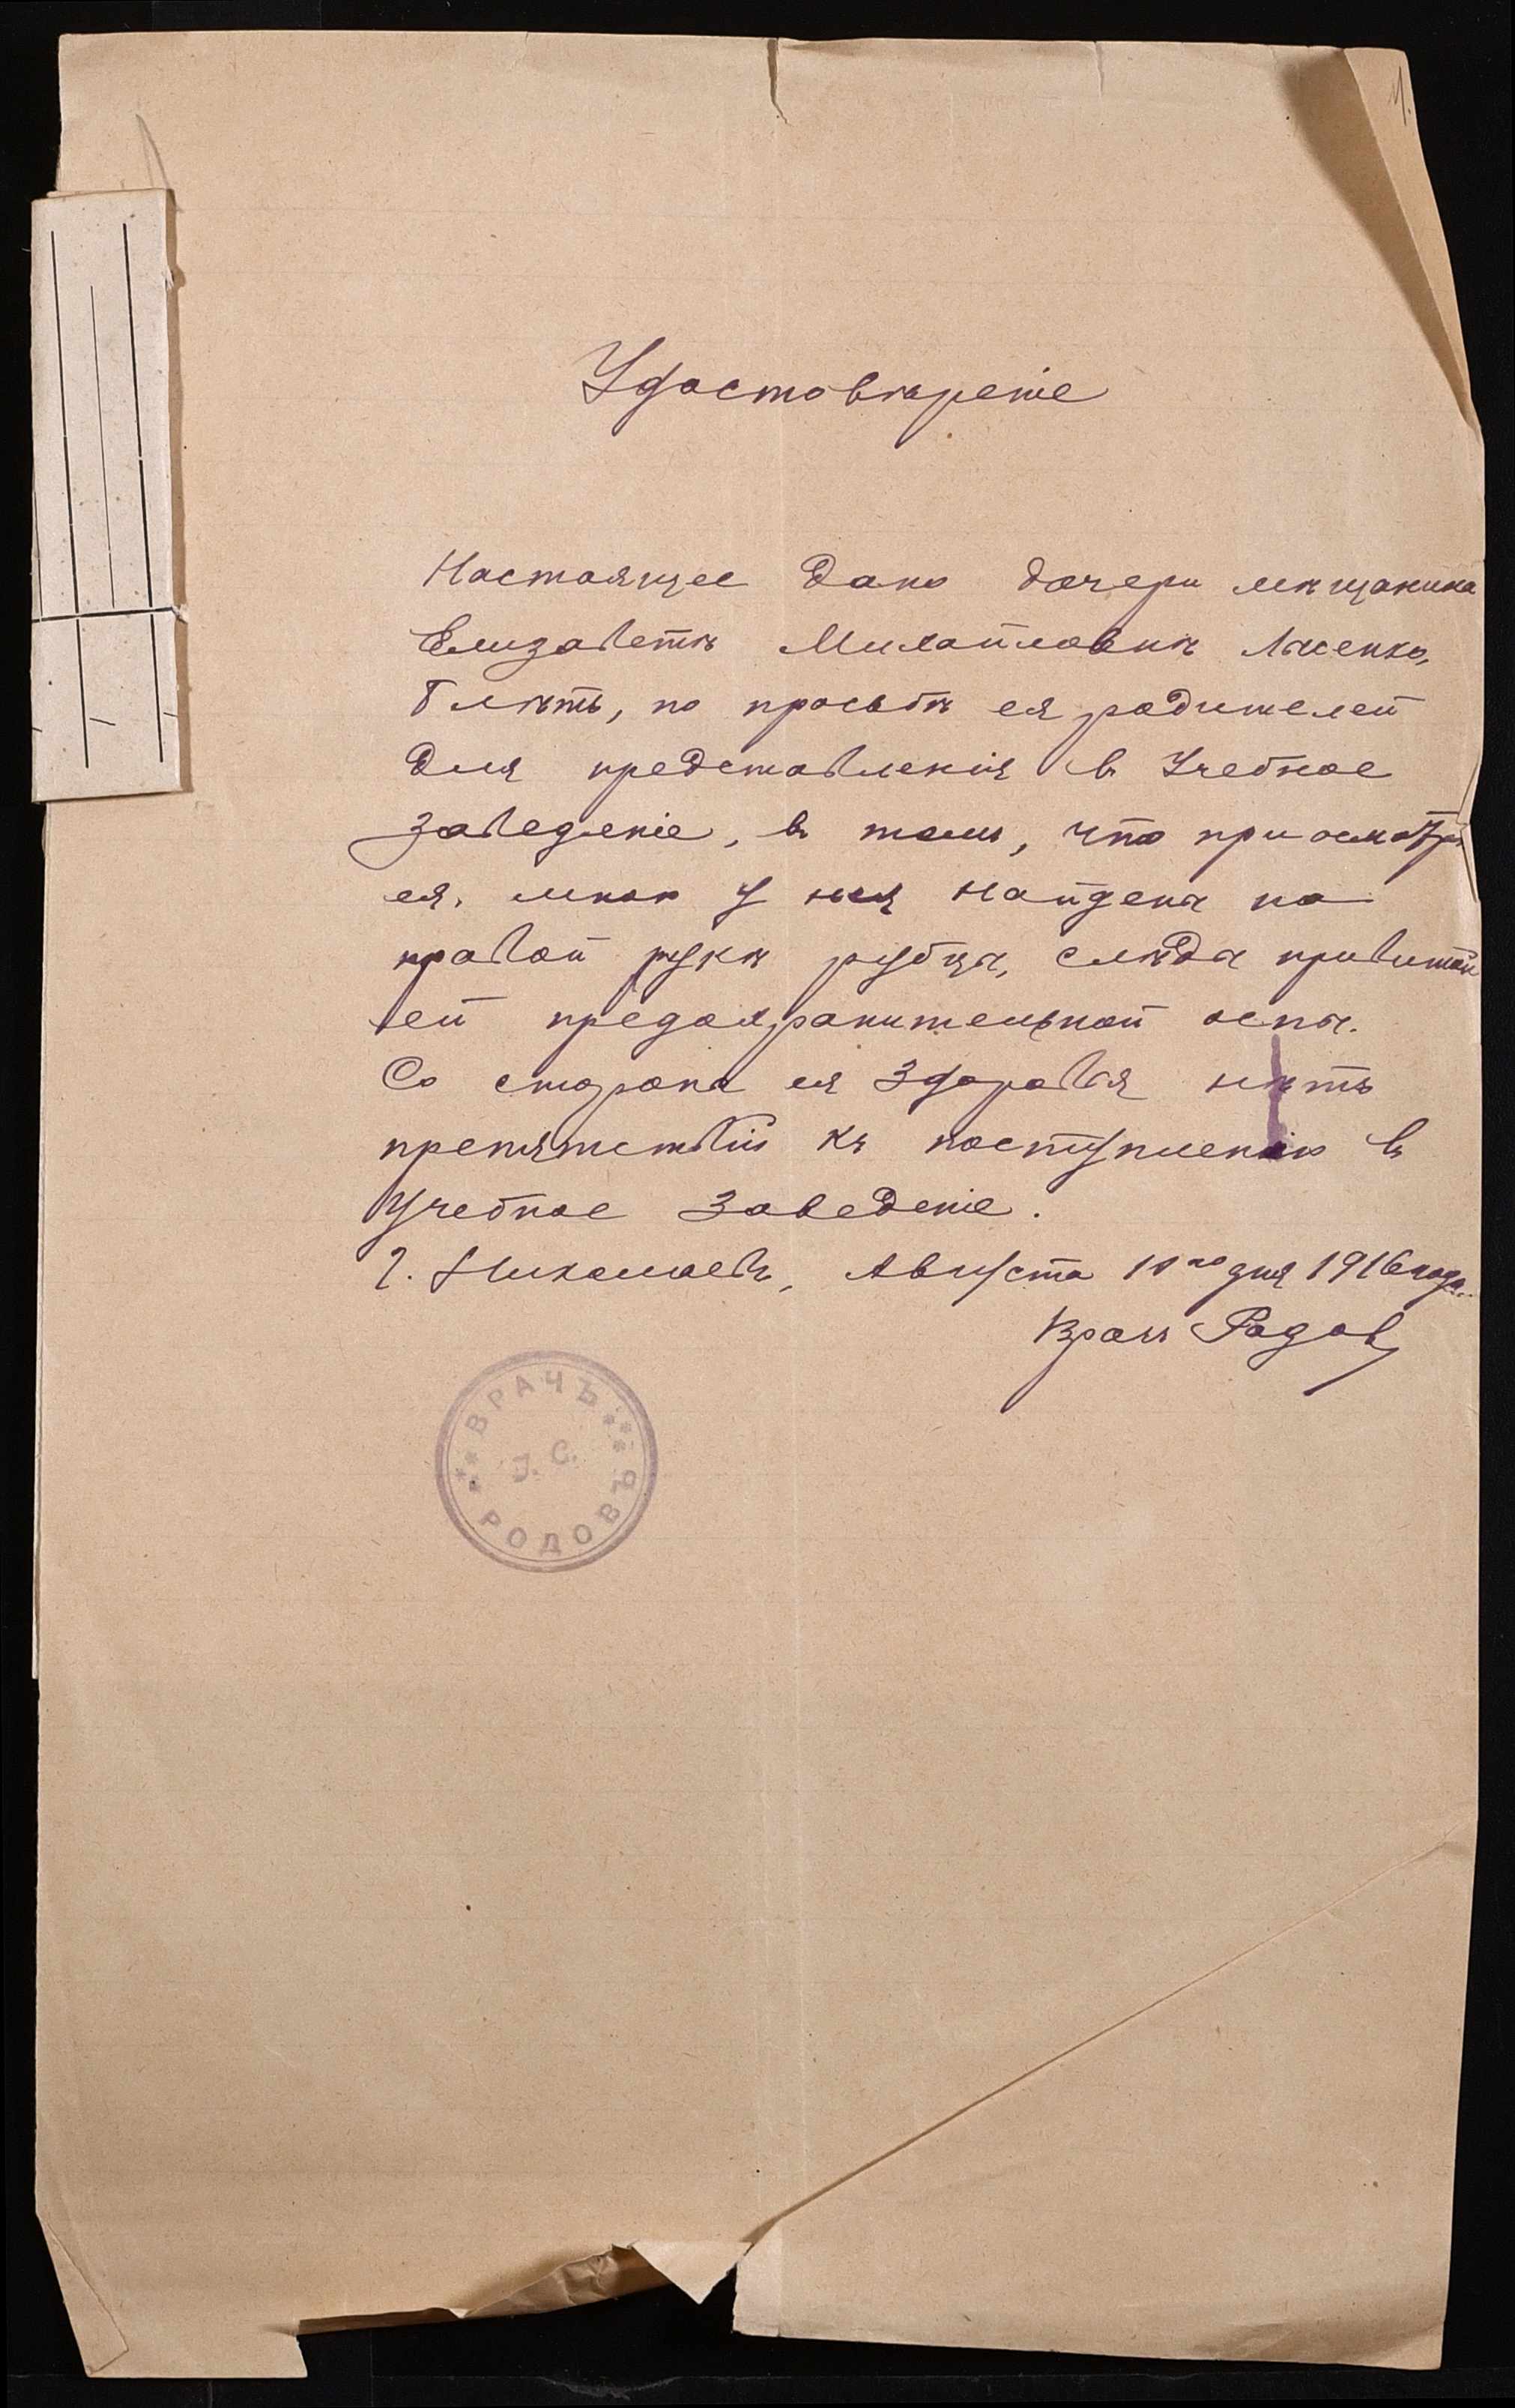 11.
Удостовѣреніе
Настоящее дано дочери мѣщанина
Елизаветѣ Михайловнѣ Лысенко,
лѣтъ, по просьбѣ ея родителей
для представленія въ Учебное
заведеніе, въ томъ, что при осмотрѣ
ея, мною у нея найдены на
правой рукѣ рубцы, слѣды привитой
ей предохранительной оспы.
Со стороны ея здоровья нѣтъ
препятствій къ поступленію въ
Учебное заведеніе.
Г. Николаевъ, Августа 10го дня 1916 года.
Врачъ Родовъ
ВРАЧЪ
І. С.
РОДОВЪ